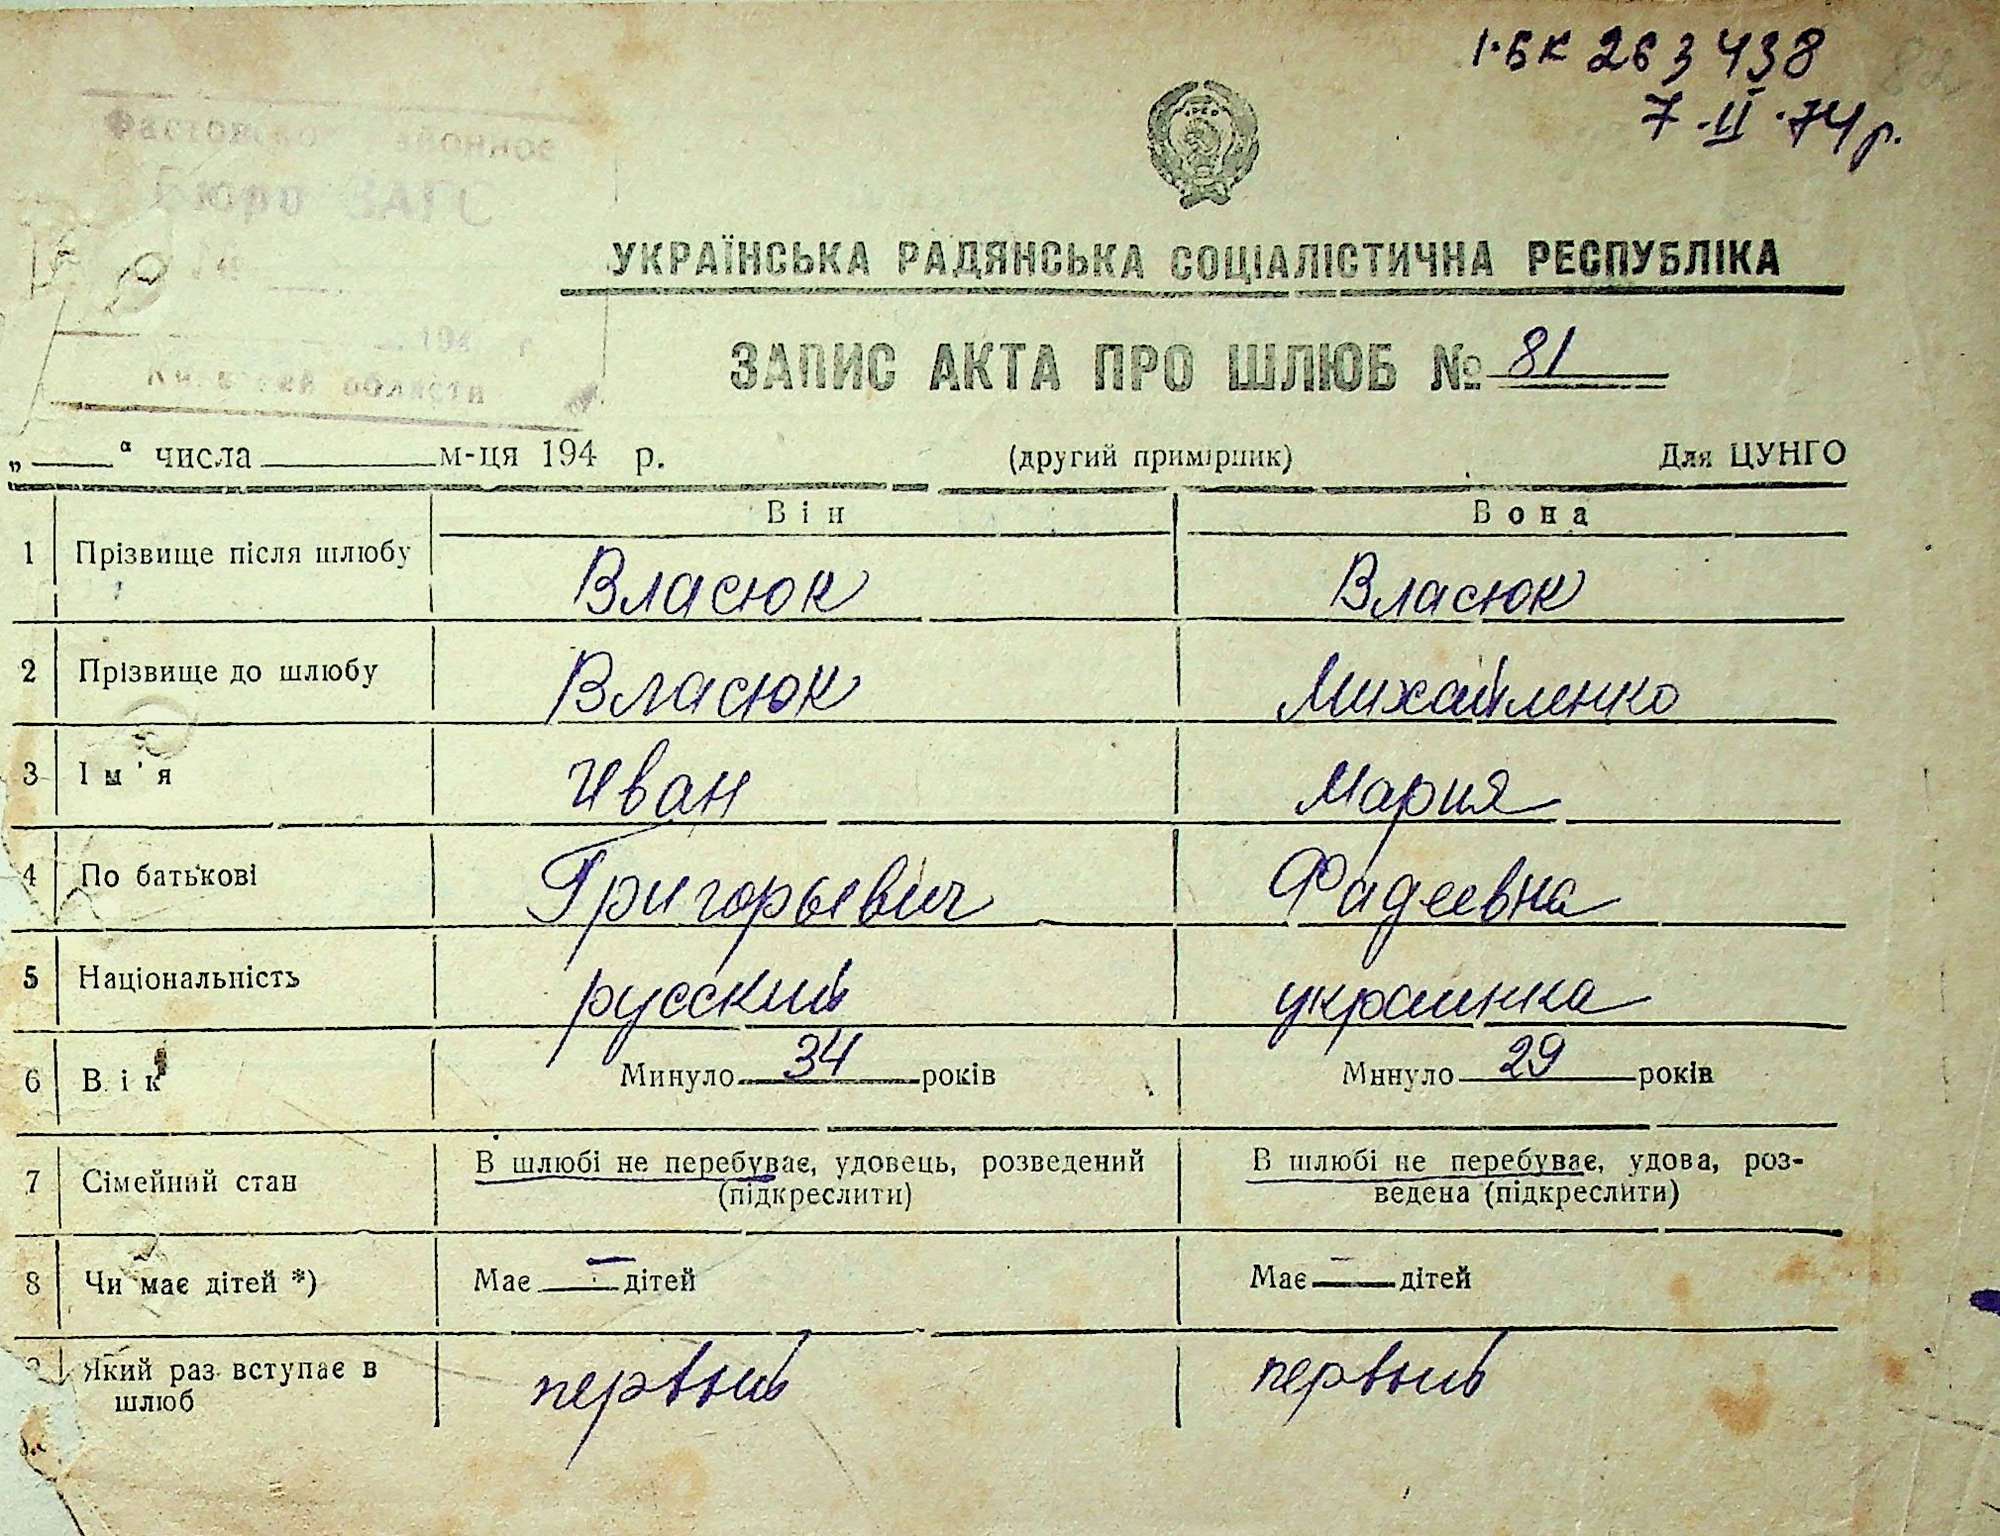 I·БК 263438
7·II·74 р.
районное
Бюро ЗАГС
194 г
области
УКРАЇНСЬКА РАДЯНСЬКА СОЦІАЛІСТИЧНА РЕСПУБЛІКА
ЗАПИС АКТА ПРО ШЛЮБ № 81
„ “ числа м-ця 194 р. (другий примірник) Для ЦУНГО
Він Вона
1 Прізвище після шлюбу Власюк Власюк
2 Прізвище до шлюбу Власюк Михайленко
3 Ім'я Иван Мария
4 По батькові Григорьевич Фадеевна
5 Національність русский украинка
6 Вік Минуло 34 років Минуло 29 років
7 Сімейний стан В шлюбі не перебуває, удовець, розведений В шлюбі не перебуває, удова, роз-
(підкреслити) ведена (підкреслити)
8 Чи має дітей *) Має — дітей Має — дітей
9 Який раз вступає в первый первый
шлюб